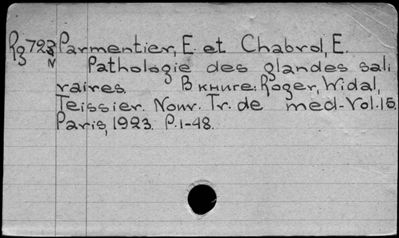 Rg 723 Parmentier, E. et Chabrol, E.
N Pathologie des glandes sali
raires. В книге: Roger, Widal,
Teissier. Nouv. Tr. de med. Vol. 15.
Paris, 1923. P. 1-48.